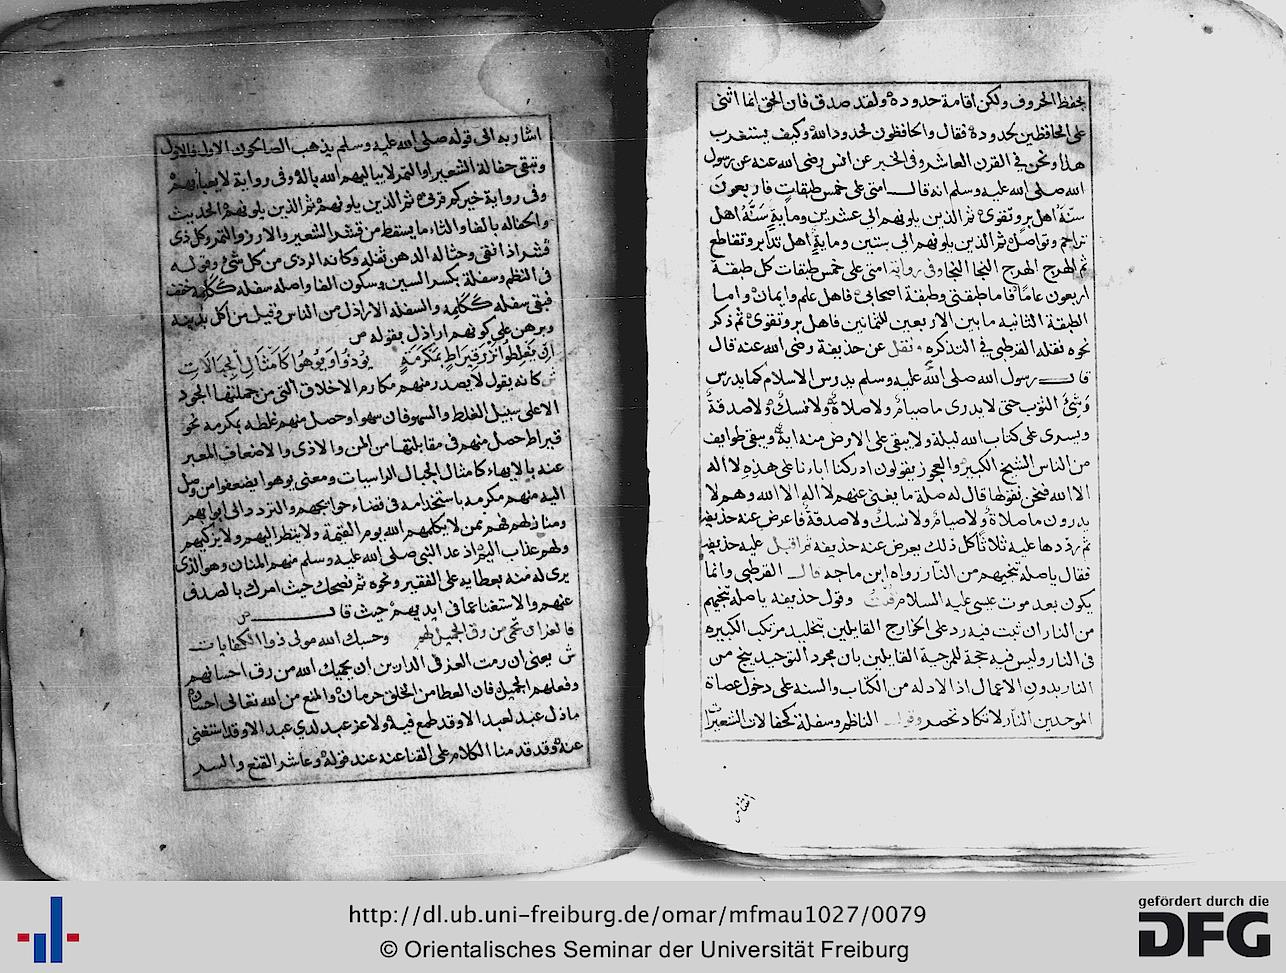 بحفظ الحروف ولكن اقامة حدوده ولقد صدق فان الحق انما اثنى
على الحافظين لحدوده فقال والحافظون لحدود الله وكيف يستغرب
هذا ونحن في القرن العاشر وفى الخبر عن انس رضى الله عنه عن رسول
الله صلى الله عليه وسلم انه قال امتى على خمس طبقات فاربعون
سنة اهل بر وتقوى ثم الذين يلونهم الى عشرين وماية سنة اهل
تراحم وتواصل ثم الذين يلونهم الى ستين وماية اهل تدابر وتقاطع
ثم الهرج الهرج النجا النجا وفى رواية امتى على خمس طبقات كل طبقة
اربعون عاما فاما طبقتى وطبقة اصحابى فاهل علم وايمان واما
الطبقة الثانيه ما بين الاربعين للثمانين فاهل بر وتقوى ثم ذكر
نحوه نقله القرطبى في التذكره ونقل عن حذيفة رضى الله عنه قال
قال رسول الله صلى الله عليه وسلم يدرس الاسلام كما يدرس
وشى الثوب حتى لا يدرى ما صيام ولا صلاة ولا نسك ولا صدقة
ويسرى على كتاب الله ليلة ولا يبقى على الارض منه اية ويبقى طوايف
من الناس الشيخ الكبير والعجوز يقولون ادركنا اباءنا على هذه لا اله
الا الله فنحن نقولها قال له صلة ما يغنى عنهم لا اله الا الله وهم لا
يدرون ما صلاة ولا صيام ولا نسك ولا صدقة فاعرض عنه حذيفه
ثم رددها عليه ثلاثا كل ذلك يعرض عنه حذيفه ثم اقبل عليه حذيفه
فقال يا صله تنجيهم من النار رواه ابن ماجه قال القرطبى وانما
يكون بعد موت عيسى عليه السلام قلت وقول حذيفه يا صله تنجيهم
من النار ان ثبت فيه رد على الخوارج القايلين بتخليد مرتكب الكبيره
فى النار وليس فيه حجة للمرجية القايلين بان مجرد التوحيد ينج من
النار بدون الاعمال اذ الادله من الكتاب والسنه على دخول عصاة
الموحدين النار لا تكاد تحصر وقول الناظم وسفلة كحفالات الشعيرات
اشار به الى قوله صلى الله عليه وسلم يذهب الصالحون الاول فالاول
وتبقى حفالة الشعير او التمر لا يباليهم الله بالة وفى رواية لا يعبا بهم
وفى رواية خيركم قرنى ثم الذين يلونهم ثم الذين يلونهم الحديث
والحفاله بالفا والثاء ما يسقط من قشر الشعير والارز والتمر وكل ذى
قشر اذا نقى وحثاله الدهن ثقله وكانه الردى من كل شئ وقوله
فى النظم وسفلة بكسر السين وسكون الفا واصله سفله ككلمه خفف
فبقى سفله ككلمه والسفله الاراذل من الناس وقيل من اكل بدينه
وبرهن على كونهم اراذل بقوله ص
ان يغلطوا نزر قيراط بمكرمة يوذوا ويوهوا كامثال الجبالات
ش كانه يقول لا يصدر منهم مكارم الاخلاق التى من جملتها الجود
الا على سبيل الغلط والسهو فان سهوا وحصل منهم غلطه بمكرمه نحو
قيراط حصل منهم فى مقابلتها من المن والاذى والاضعاف المعبر
عنه بالايهاء كامثال الجبال الراسيات ومعنى يوهوا يضعفوا من وصل
اليه منهم مكرمه باستخدامه فى قضاء حوائجهم والتردد الى ابوابهم
ومنازلهم فهم ممن لا يكلمهم الله يوم القيمة ولا ينظر اليهم ولا يزكيهم
ولهم عذاب اليم اذ عد النبى صلى الله عليه وسلم منهم المنان وهو الذى
يرى له منه بعطايه على الفقير ونحوه ثم نصحك حيث امرك بالصدف
عنهم والاستغنا عما فى ايديهم حيث قال ص
فالعز ان تحمى من رق الجميل لهم وحسبك الله مولى ذو الكفايات
ش يعنى ان رمت العز فى الدارين ان يحميك الله من رق احسانهم
وفعلهم الجميل فان العطا من الخلق حرمان والمنع من الله تعالى احسان
ما ذل عبد لعبد الا وقد طمع فيه ولا عز عبد لدي عبد الا وقد استغنى
عنه وقد قدمنا الكلام على القناعه عند قوله وعاشر القنع والسر
http://dl.ub.uni-freiburg.de/omar/mfmau1027/0079
© Orientalisches Seminar der Universität Freiburg
gefördert durch die
DFG